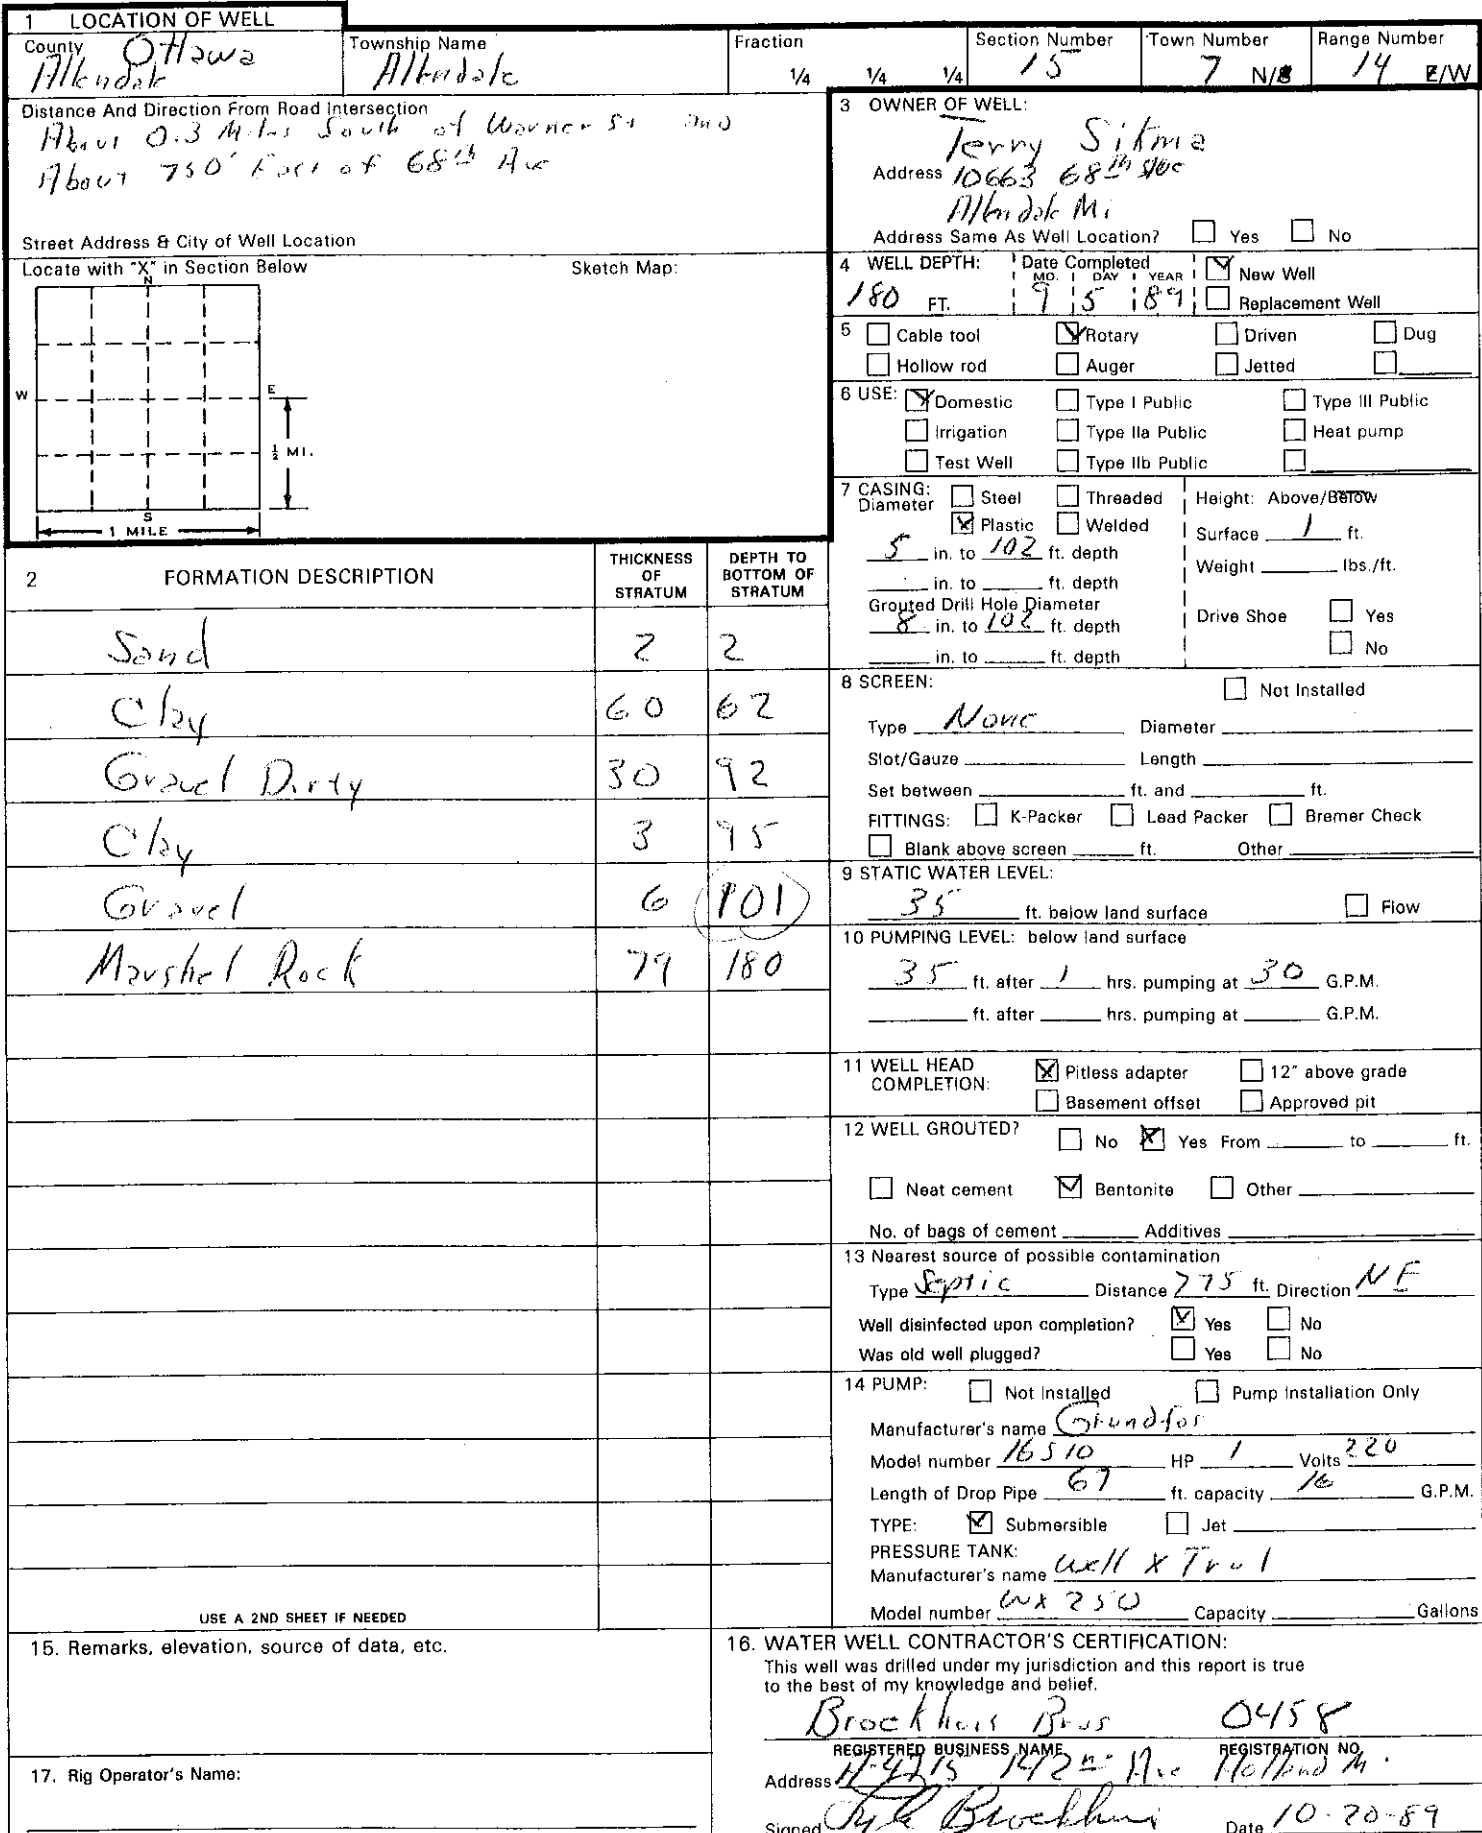 1 LOCATION OF WELL
County Ottawa
Allendale
Township Name
Allendale
Fraction
1/4 1/4 1/4
Section Number
15
Town Number
7 N/S
Range Number
14 E/W
Distance And Direction From Road Intersection
About 0.3 Miles South of Warner St and
About 750' East of 68th Ave
Street Address & City of Well Location
Locate with "X" in Section Below
Sketch Map:
N
W
E
½ MI.
S
1 MILE
3 OWNER OF WELL:
Terry Sitma
Address 10663 68th Ave
Allendale Mi
Address Same As Well Location? Yes No
4 WELL DEPTH:
180 FT.
Date Completed
MO. DAY YEAR
9 5 89
New Well
Replacement Well
5 Cable tool Rotary Driven Dug
Hollow rod Auger Jetted
6 USE: Domestic Type I Public Type III Public
Irrigation Type IIa Public Heat pump
Test Well Type IIb Public
7 CASING: Steel Threaded
Diameter Plastic Welded
5 in. to 102 ft. depth
in. to ft. depth
Grouted Drill Hole Diameter
8 in. to 102 ft. depth
in. to ft. depth
Height: Above/Below
Surface 1 ft.
Weight lbs./ft.
Drive Shoe Yes
No
2 FORMATION DESCRIPTION
THICKNESS OF STRATUM
DEPTH TO BOTTOM OF STRATUM
Sand 2 2
Clay 60 62
Gravel Dirty 30 92
Clay 3 95
Gravel 6 101
Marshel Rock 79 180
USE A 2ND SHEET IF NEEDED
8 SCREEN: Not Installed
Type None Diameter
Slot/Gauze Length
Set between ft. and ft.
FITTINGS: K-Packer Lead Packer Bremer Check
Blank above screen ft. Other
9 STATIC WATER LEVEL:
35 ft. below land surface Flow
10 PUMPING LEVEL: below land surface
35 ft. after 1 hrs. pumping at 30 G.P.M.
ft. after hrs. pumping at G.P.M.
11 WELL HEAD COMPLETION: Pitless adapter 12" above grade
Basement offset Approved pit
12 WELL GROUTED? No Yes From to ft.
Neat cement Bentonite Other
No. of bags of cement Additives
13 Nearest source of possible contamination
Type Septic Distance 775 ft. Direction NE
Well disinfected upon completion? Yes No
Was old well plugged? Yes No
14 PUMP: Not Installed Pump Installation Only
Manufacturer's name Grundfos
Model number 16S10 HP 1 Volts 220
Length of Drop Pipe 67 ft. capacity 16 G.P.M.
TYPE: Submersible Jet
PRESSURE TANK:
Manufacturer's name Well X Trol
Model number WX 250 Capacity Gallons
15. Remarks, elevation, source of data, etc.
17. Rig Operator's Name:
16. WATER WELL CONTRACTOR'S CERTIFICATION:
This well was drilled under my jurisdiction and this report is true
to the best of my knowledge and belief.
Brockhuis Bros 0458
REGISTERED BUSINESS NAME REGISTRATION NO.
Address 142nd Ave Holland Mi.
Signed Lyle Brockhuis Date 10-20-89